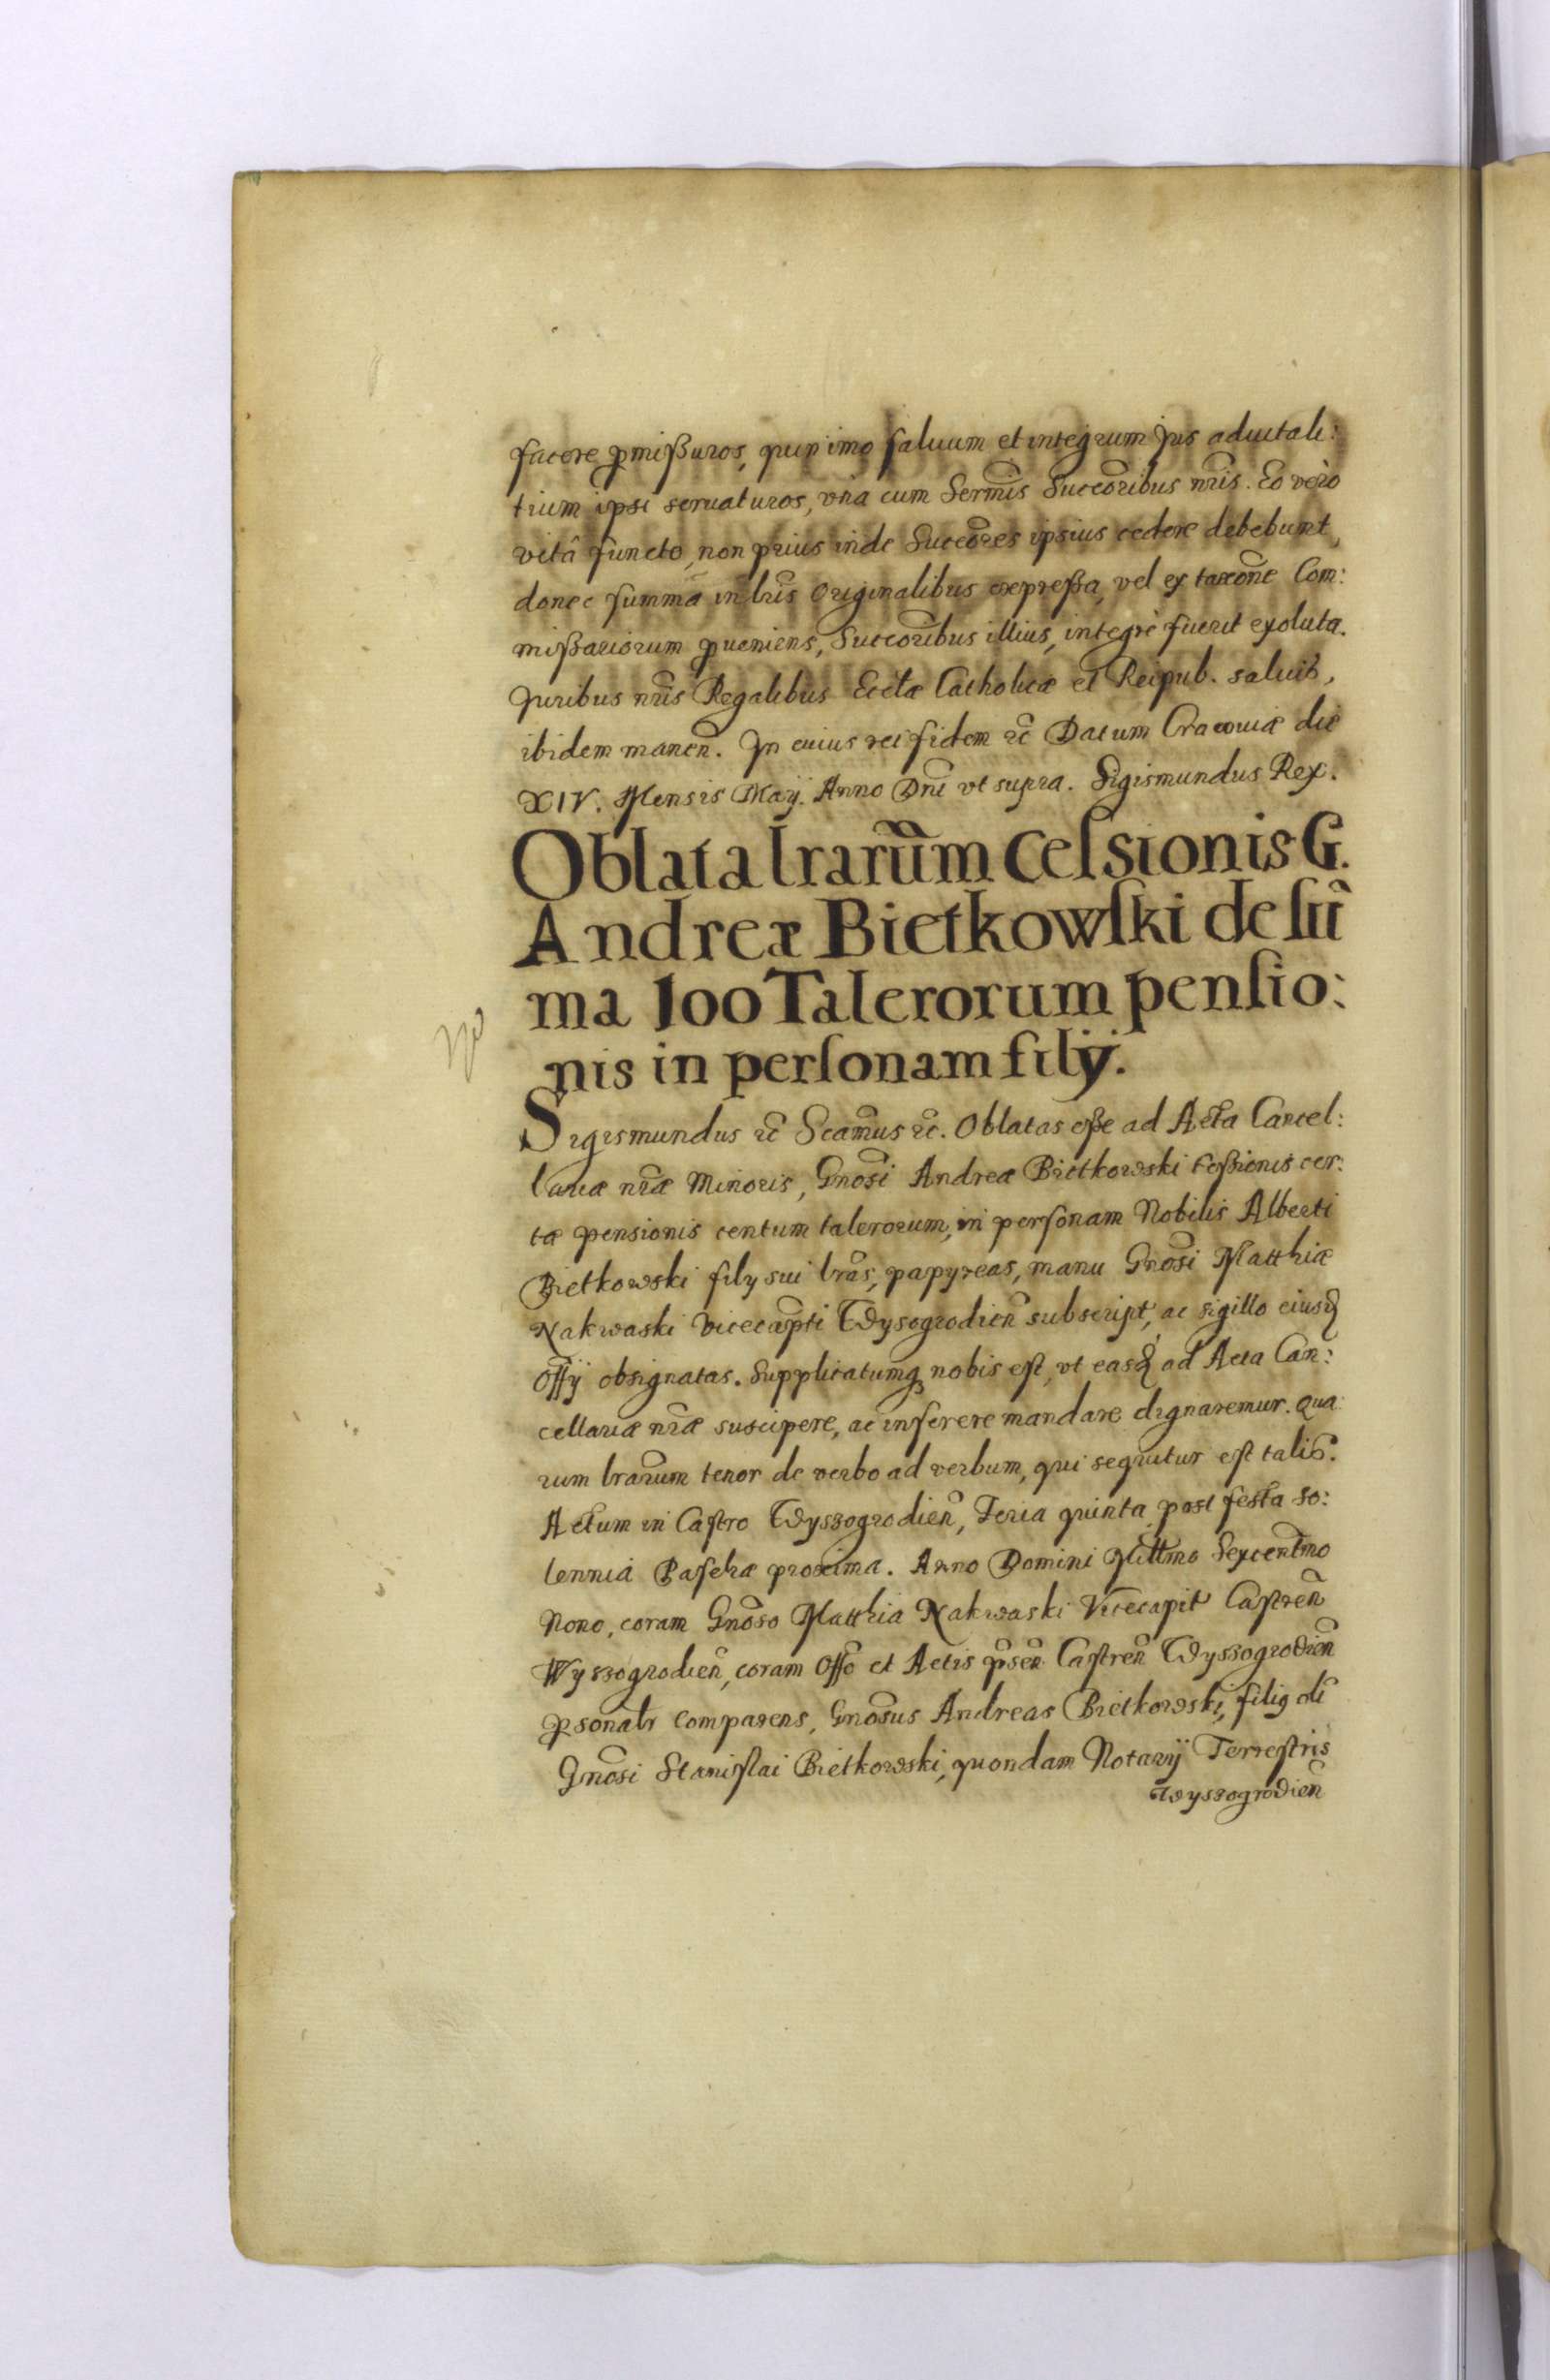 facere ꝑmißuros, quin imo saluum et integrum Jus aduitali:
tium ipsi seruaturos, vna cum Serm̃is Succõribus nr̃is. Eo vero
vitâ functo, non prius inde Succõres ipsius cedere debebunt,
donec summa in lr̃is Originalibus expreßa, vel ex taxõne Com:
mißariorum ꝓueniens, Succõribus illius, integrè fuerit exoluta.
Juribus nr̃is Regalibus Ecclæ Catholicæ et Reipub. saluis,
ibidem maneñ. In cuius rei fidem ꝛc̃ Datum Cracouiæ die
XIV. Mensis Maÿ. Anno Dñi vt supra. Sigismundus Rex.
Oblata lrarum̃ Ceſsionis G.
Andreæ Bietkowſki de ſũ
ma 100 Talerorum penſio:
nis in perſonam filÿ.
Sigismundus ꝛc̃ Scam̃us ꝛc̃. Oblatas eße ad Acta Cancel:
lariæ nr̃æ Minoris, Gnõsi Andreæ Bietkowski ceßionis cer:
tæ pensionis centum talerorum, in personam Nobilis Alberti
Bietkowski fily sui lr̃as, papyreas, manu Gnõsi Matthiæ
Nakwaski Vicecap̃ti Wysogrodieñ subscript, ac sigillo eiusd̃
Offÿ obsignatas. Supplicatumq; nobis est, vt easd̃ ad Acta Can:
cellariæ nr̃æ suscipere, ac inserere mandare dignaremur. Qua
rum lrãrum tenor de verbo ad verbum, qui sequitur est talis.
Actum in Castro Wyszogrodieñ, Feria quinta post festa so:
lennia Paschæ proxima. Anno Domini Milĺmo Sexcentm̃o
Nono, coram Gnõso Matthia Nakwaski Vicecapit Castreñ
Wyszogrodieñ, coram Offõ et Actis p̃señ Castreñ Wyszogrodieñ
ꝑsonalr comparens, Gnõsus Andreas Bietkowski, filiꝰ oli͂
Gnõsi Stanislai Bietkowski, quondam Notarÿ Terrestris
Wyszogrodieñ